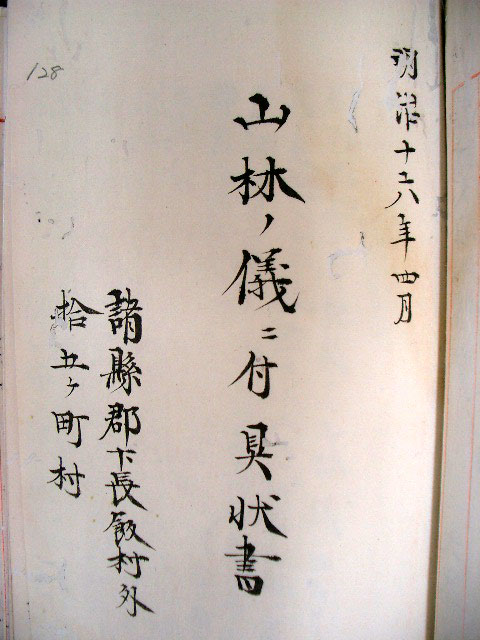 明治十六年四月
山林ノ儀ニ付具状書
諸縣郡下長飯村外
拾五ヶ町村
128